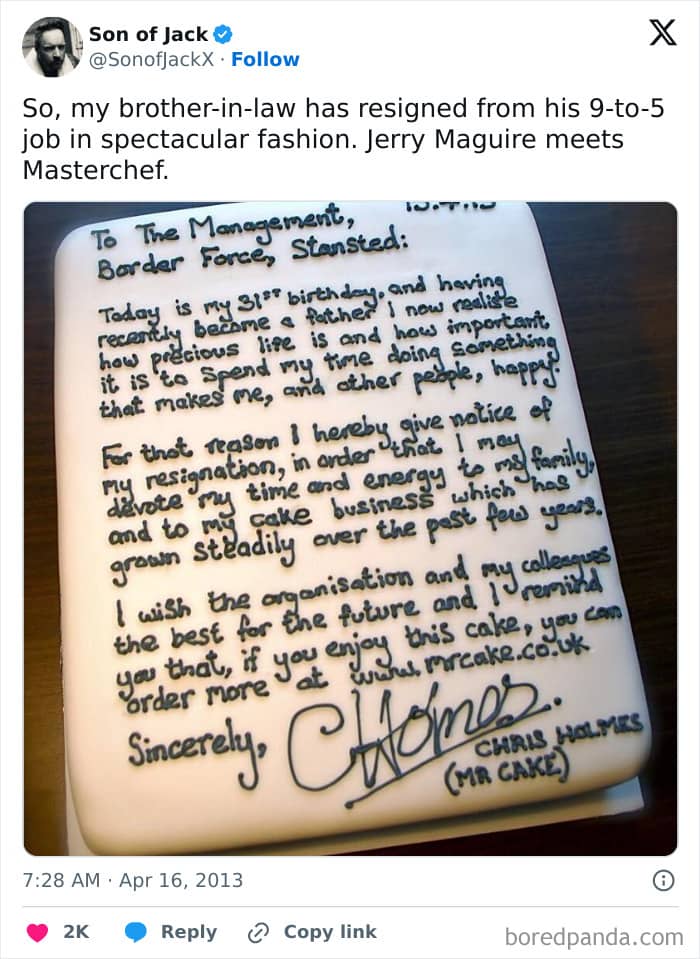 Son of Jack
@SonofJackX · Follow
X
So, my brother-in-law has resigned from his 9-to-5
job in spectacular fashion. Jerry Maguire meets
Masterchef.
To The Management,
Border Force, Stansted:
Today is my 31ST birthday, and having
recently become a father I now realise
how precious life is and how important
it is to spend my time doing something
that makes me, and other people, happy.
For that reason I hereby give notice of
my resignation, in order that I may
devote my time and energy to my family,
and to my cake business which has
grown steadily over the past few years.
I wish the organisation and my colleagues
the best for the future and I remind
you that, if you enjoy this cake, you can
order more at www.mrcake.co.uk
Sincerely, CHolmes.
CHRIS HOLMES
(MR CAKE)
7:28 AM · Apr 16, 2013
2K Reply Copy link
boredpanda.com